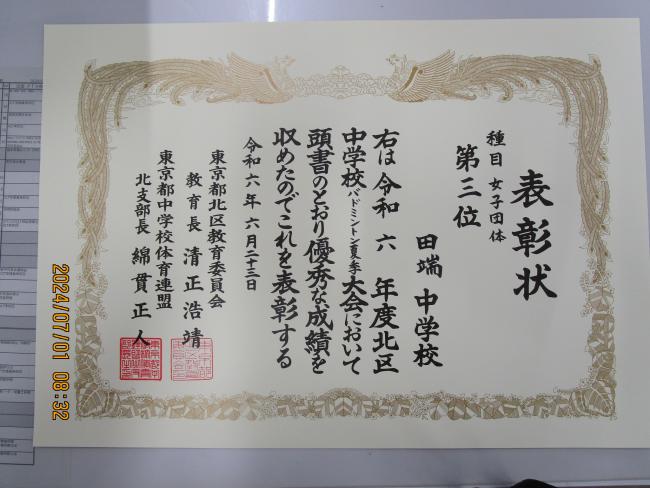 表彰状
種目 女子団体
第三位
田端 中学校
右は令和 六 年度北区
中学校バドミントン夏季大会において
頭書のとおり優秀な成績を
収めたのでこれを表彰する
令和六年 六月二十三日
東京都北区教育委員会
教育長 清正浩靖
東京都中学校体育連盟
北支部長 綿貫正人
2024/07/01 08:32